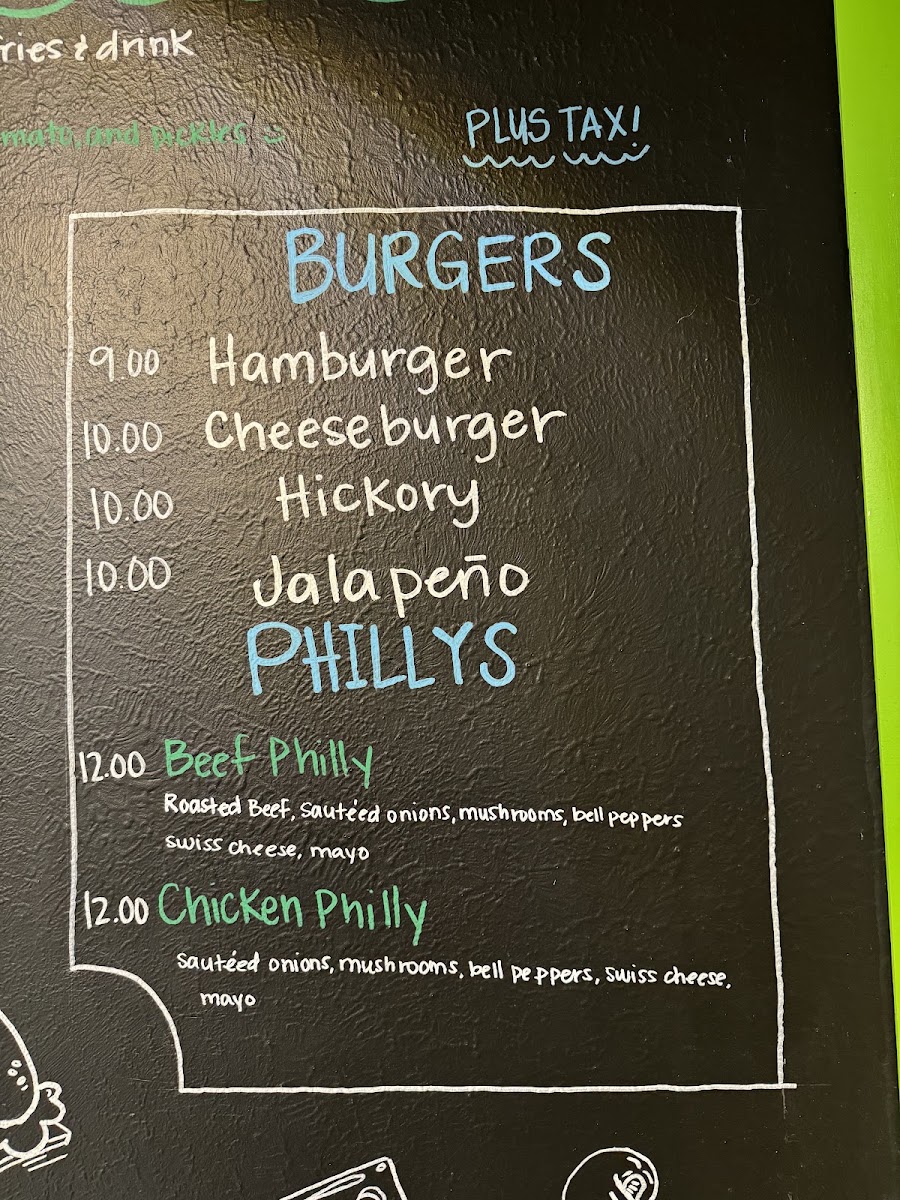 fries & drink
and pickles
PLUS TAX!
BURGERS
9.00 Hamburger
10.00 Cheeseburger
10.00 Hickory
10.00 Jalapeño
PHILLYS
12.00 Beef Philly
Roasted Beef, sautéed onions, mushrooms, bell peppers
swiss cheese, mayo
12.00 Chicken Philly
sautéed onions, mushrooms, bell peppers, swiss cheese,
mayo